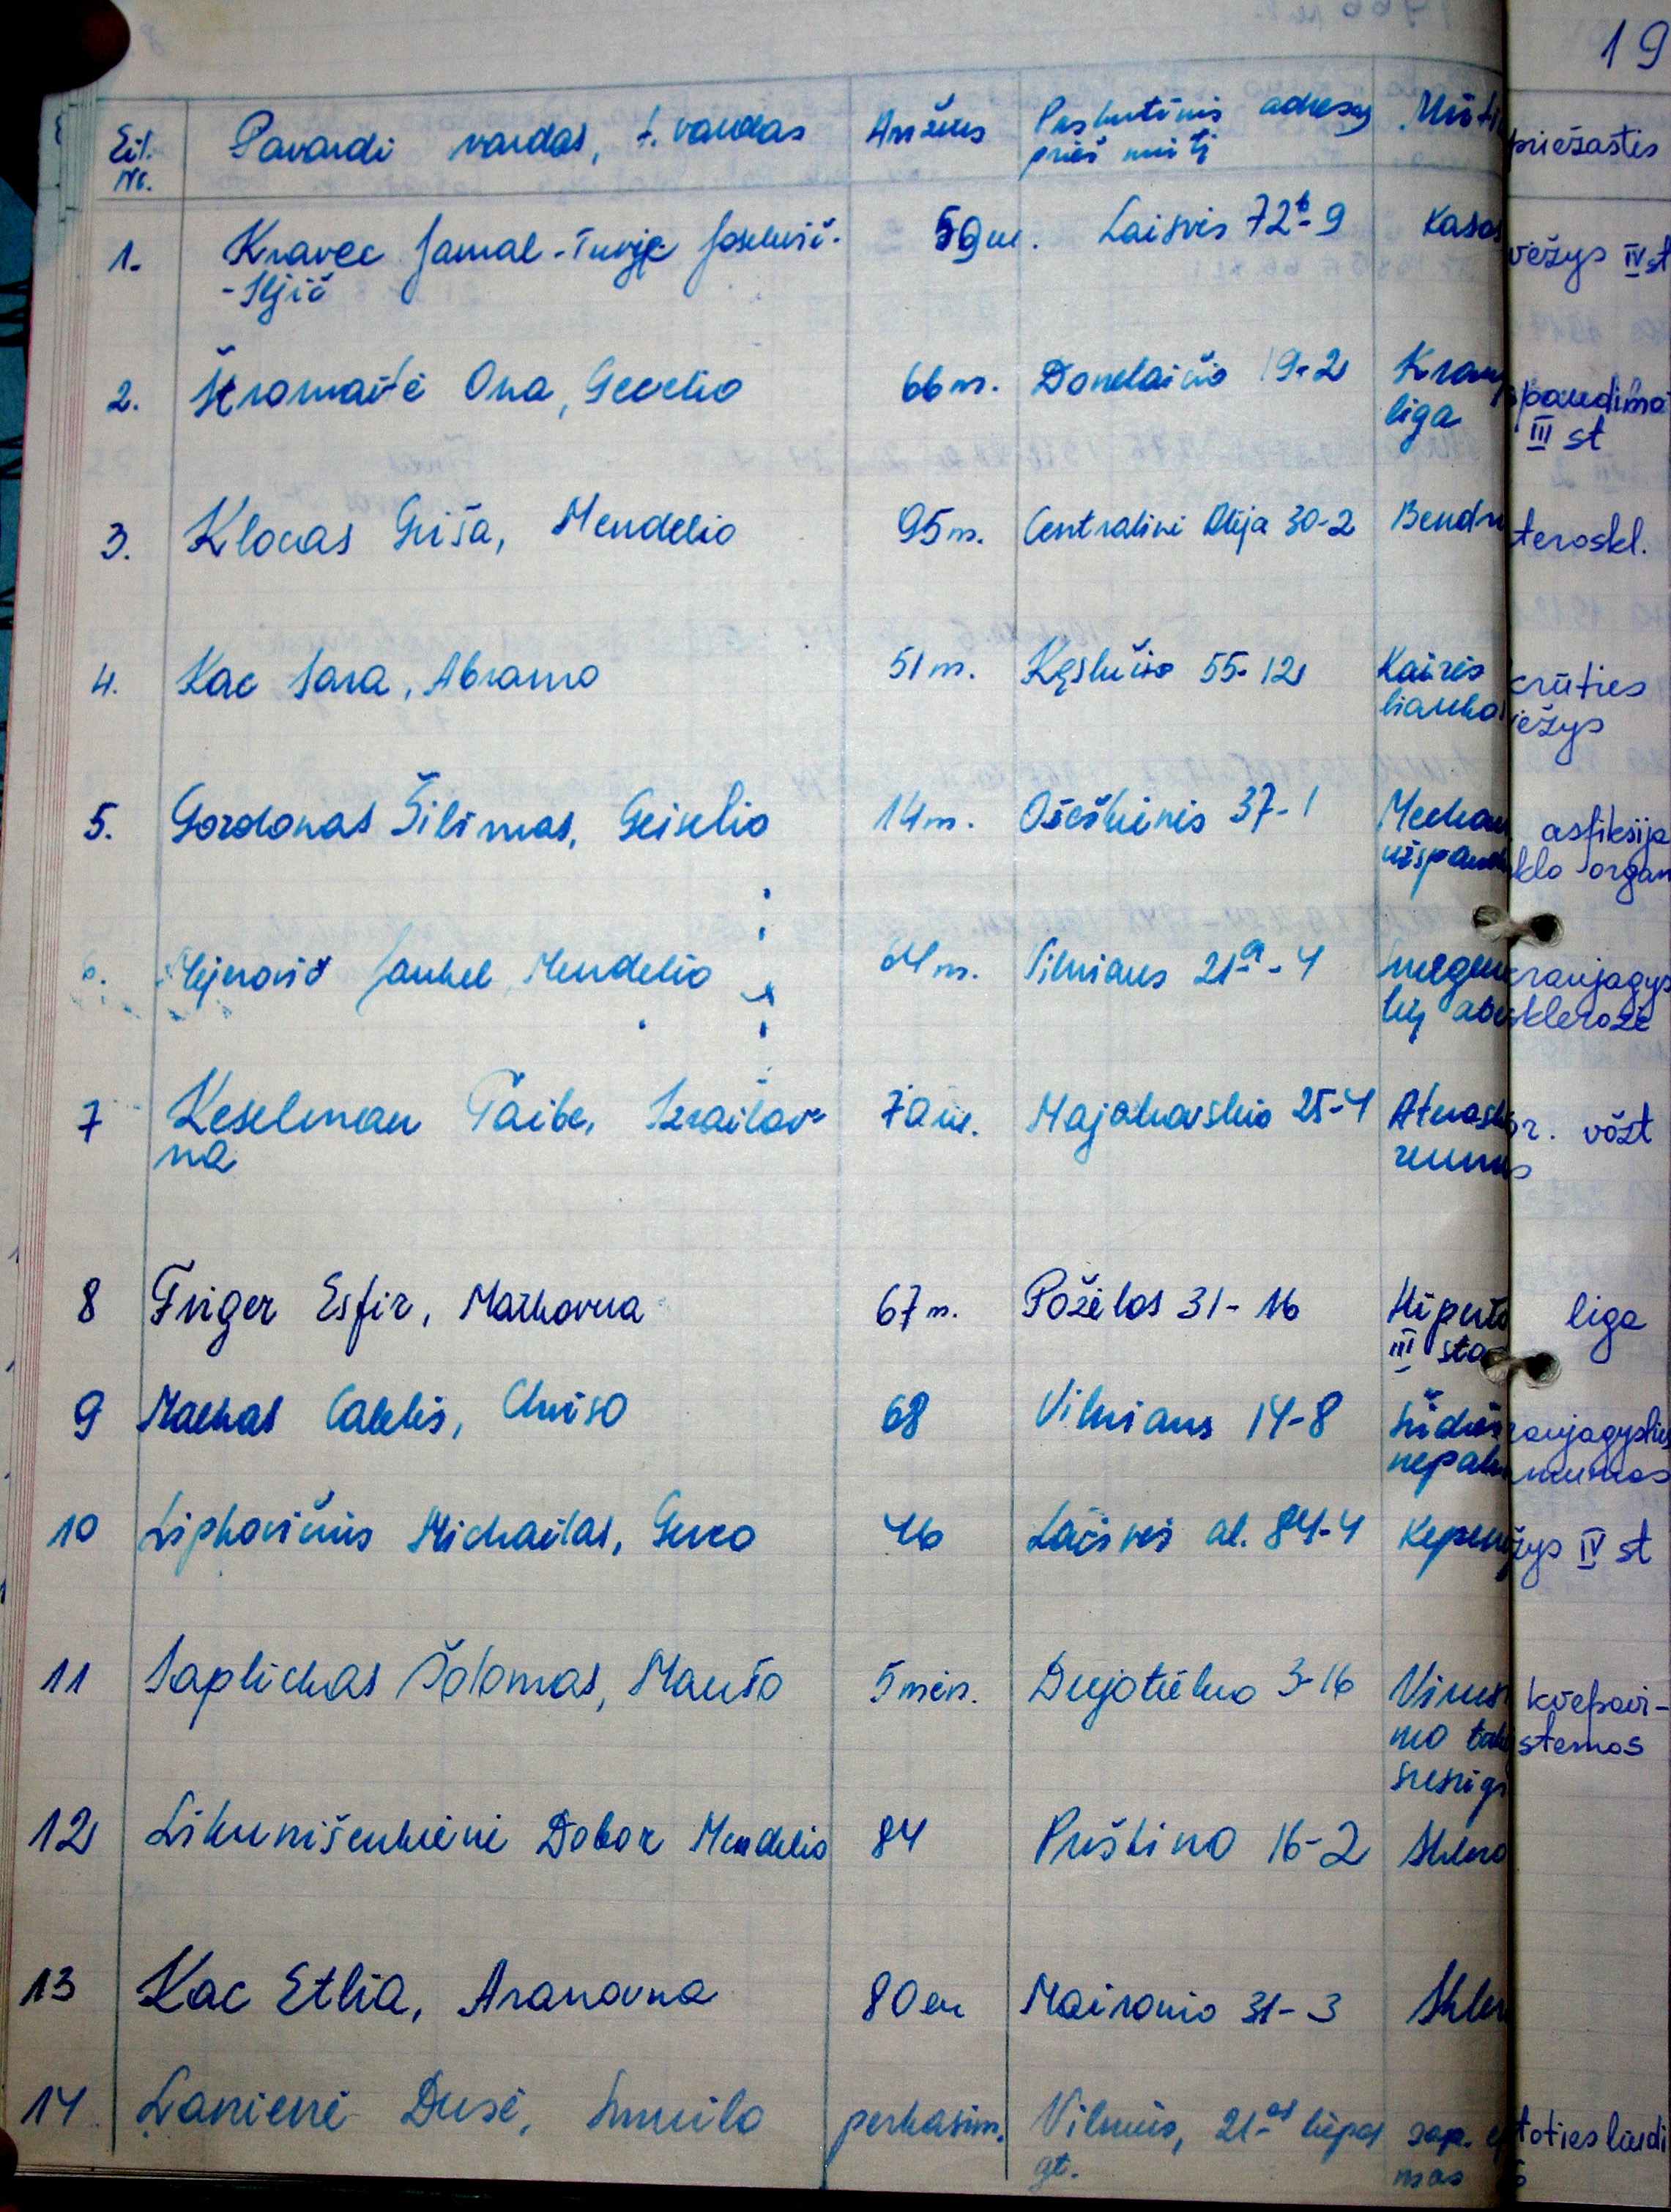 19
Eil. Nr. Pavardė vardas, t. vardas Amžius Paskutinis adresas prieš mirtį Mirti priežastis
1. Kravec Jamal-Tuvje 59 m. Laisvės 72b-9 Kasos vėžys IV st
-Iljič
2. Štromaitė Ona, Gecelio 66 m. Donelaičio 19-2 Krau spaudimo
liga III st
3. Klovas Griša, Mendelio 95 m. Centralinė Alėja 30-2 Bendr teroskl.
4. Kac Sara, Abramo 51 m. Kęstučio 55-12 Kairės krūties
liaukos vėžys
5. Gordonas Šilimas, 14 m. Ožeškienės 37-1 Mechan asfiksija
užspaud klo organ
6. Mejerovič Jankel Mendelio 64 m. Vilniaus 21a-4 smegen kraujagys
lių ate sklerozė
7 Keselman Taibe, Izrailov- 70 m. Majakovskio 25-4 Aterosk or. vožt
na
8 Friger Esfir, Markovna 67 m. Požėlos 31-16 Hiperto liga
III sta
9 Calelis, 68 Vilniaus 14-8 širdies kraujagyslių
nepak
10 Lipkovičius Michailas, 46 Laisvės al. 84-4 Kepenų vėžys IV st
11 Saplickas Šolomas, Maušo 5 mėn. 3-16 Virus kvėpavi-
mo tak stemos
susirgi
12 Likunišenkienė Dobor Mendelio 84 Puškino 16-2 Sklero
13 Kac Etlia, Aranovna 80 m Maironio 31-3 Skler
14 Lanienė Dusė, Smuilo perkasim. Vilnius, 21-os liepos rap.
gt. mas